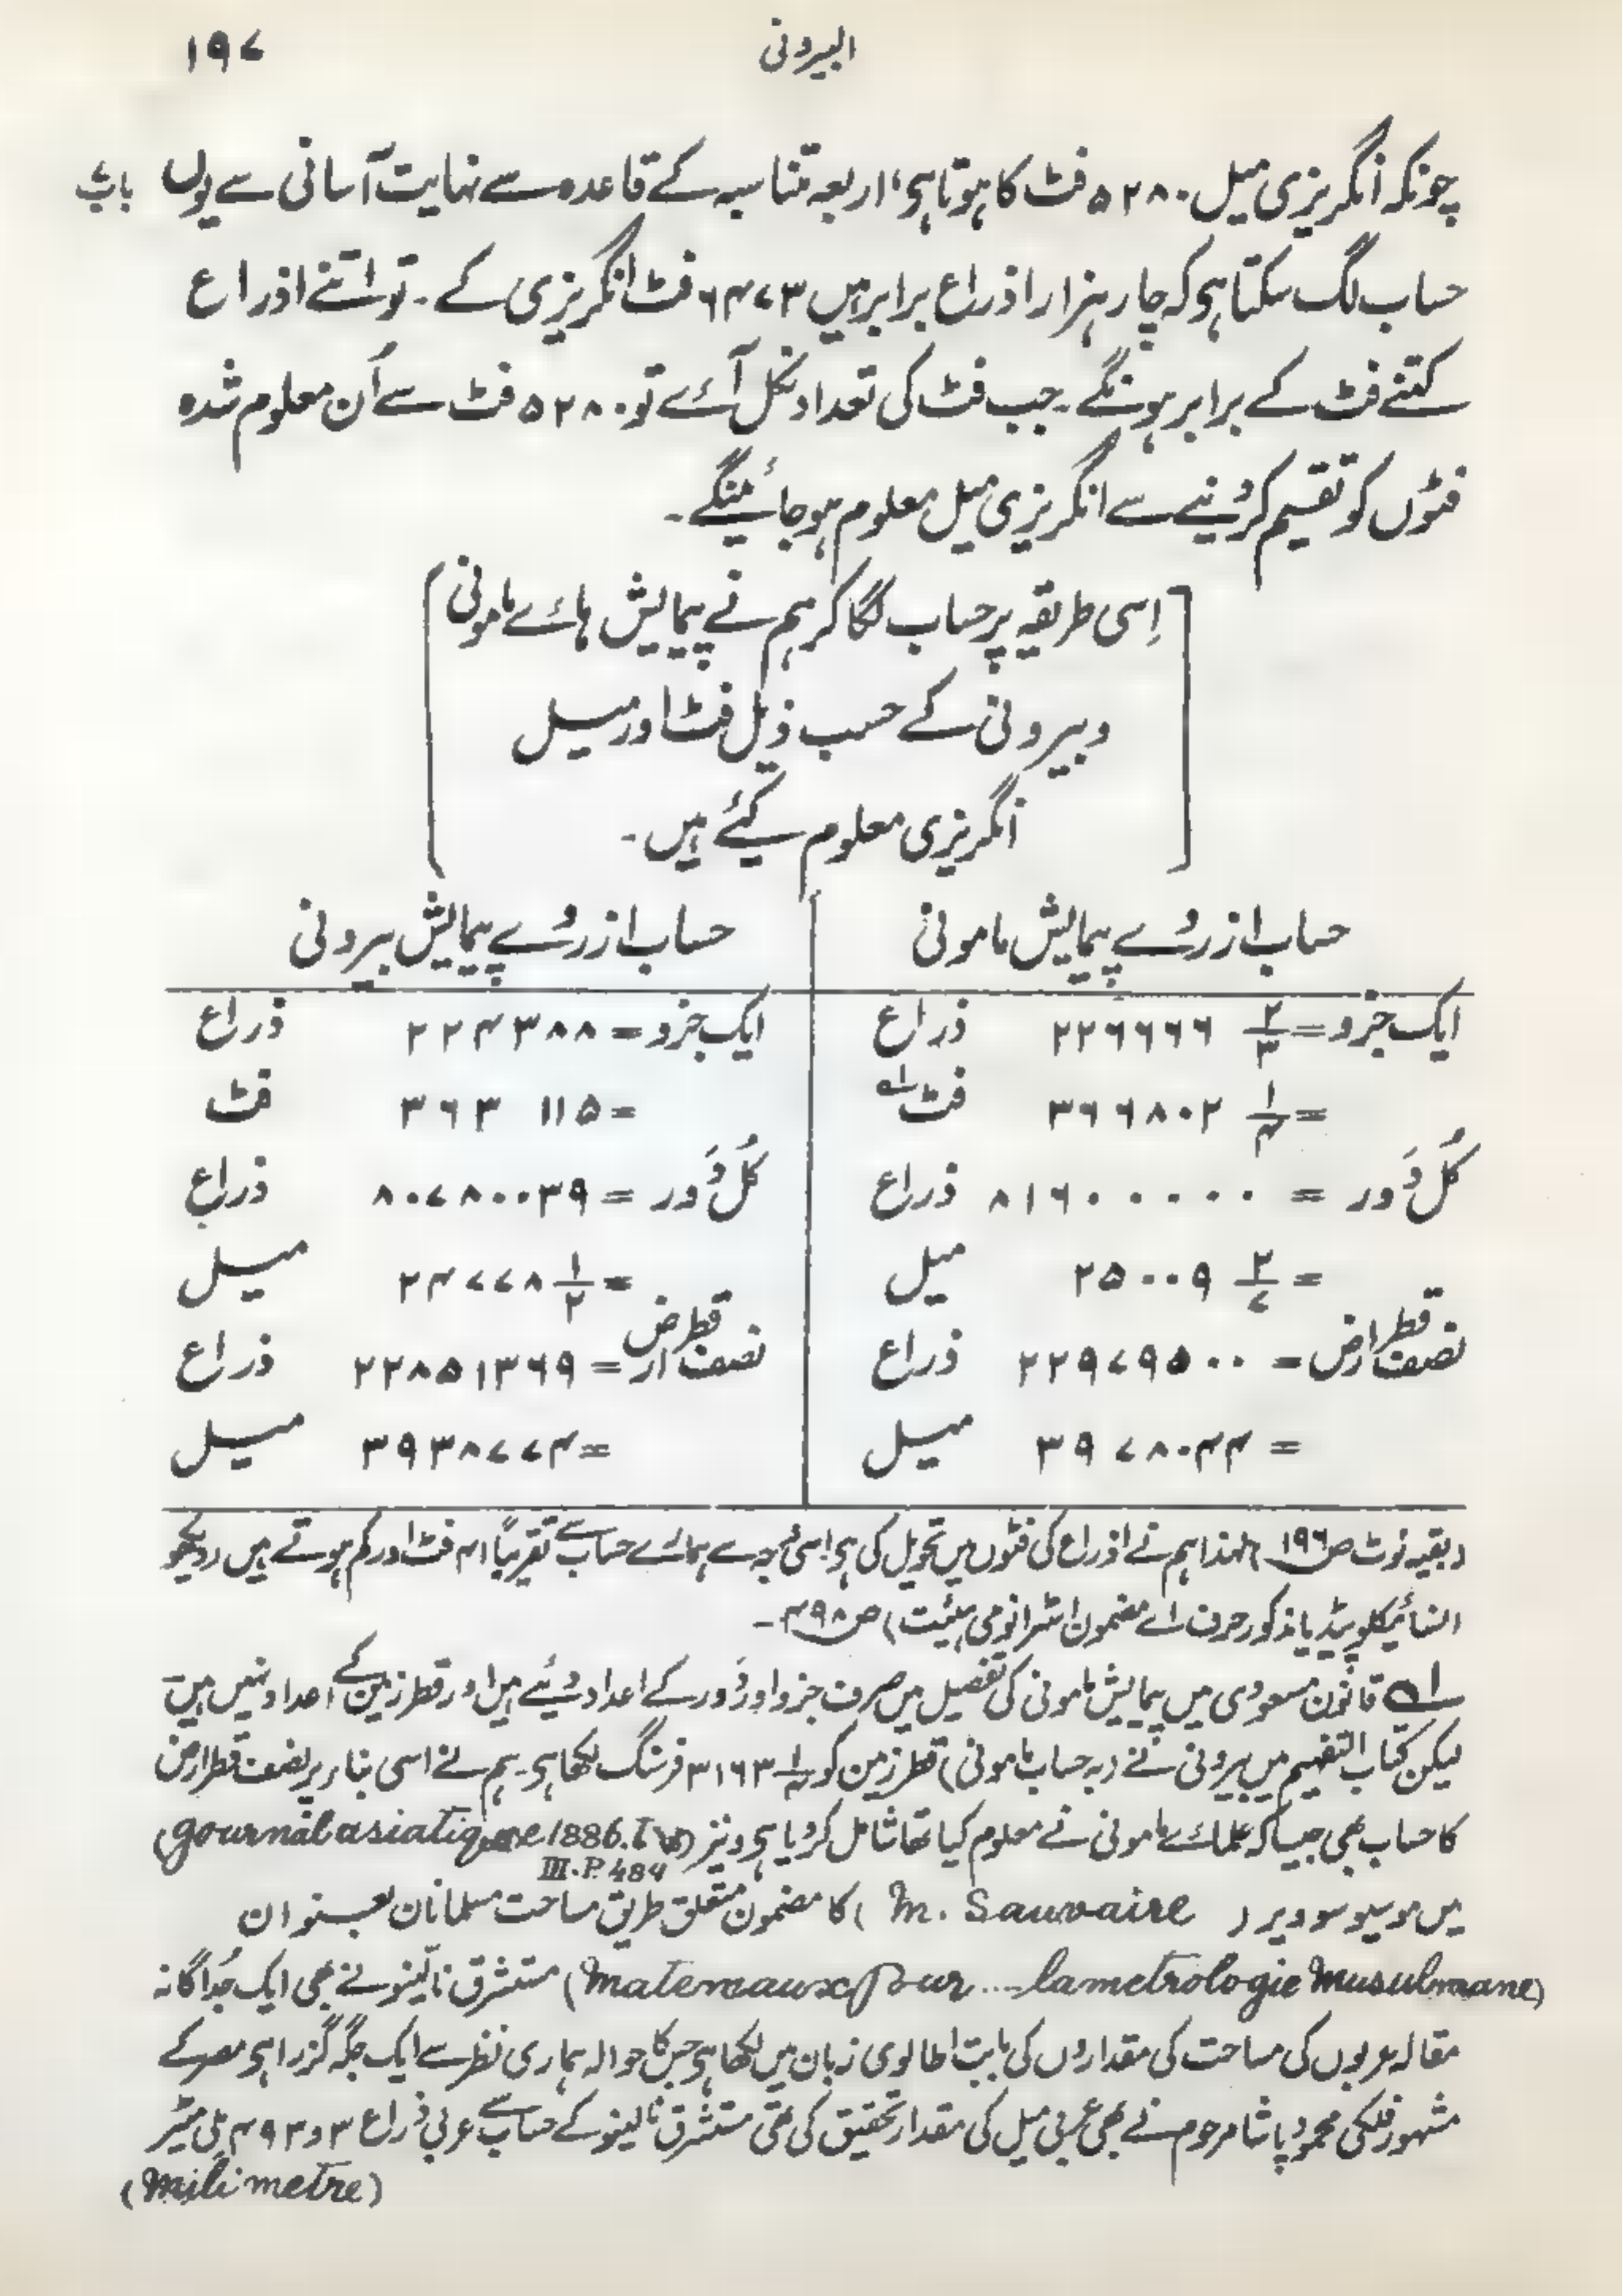 البیرونی ۱۹۷
چونکہ انگریزی میل ۵۲۸۰ فٹ کا ہوتا ہی، اربعہ متناسبہ کے قاعدہ سے نہایت آسانی سے یوں
حساب لگ سکتا ہی کہ چار ہزار اذراع برابر ہیں ۶۴۷۳ فٹ انگریزی کے ۔ تو اتنے اذراع
کتنے فٹ کے برابر ہونگے ۔ جب فٹ کی تعداد نکل آئے تو ۵۲۸۰ فٹ سے اُن معلوم شدہ
فٹوں کو تقسیم کر دینے سے انگریزی میل معلوم ہو جائینگے ۔
اِسی طریقہ پر حساب لگا کر ہم نے پیمایش ہائے مامونی
و بیرونی کے حسب ذیل فٹ اور میل
انگریزی معلوم کیئے ہیں ۔
حساب از روے پیمایش مامونی
ایک جزو = ۲۲۶۶۶۶ ۲/۳ ذراع
= ۳۶۶۸۰۲ ۱/۴ فٹ ؎۱
کُل دَور = ۸۱۶۰۰۰۰۰ ذراع
= ۲۵۰۰۹ ۲/۷ میل
نصف قطر ارض = ۲۲۹۷۹۵۰۰ ذراع
= ۳۹۷۸۰۴۴ میل
حساب از روے پیمایش بیرونی
ایک جزو = ۲۲۴۳۸۸ ذراع
= ۳۶۳۱۱۵ فٹ
کُل دَور = ۸۰۷۸۰۰۳۹ ذراع
= ۲۴۷۷۸ ۱/۲ میل
نصف قطر ارض = ۲۲۸۵۱۳۶۹ ذراع
= ۳۹۳۸۷۷۴ میل
(بقیہ نوٹ ص ۱۹۶) لہذا ہم نے اذراع کی فٹوں میں تحویل کی ہی اسی وجہ سے ہمارے حساب سے تقریباً ۴۱ فٹ اور کم ہوتے ہیں (دیکھو
انسائیکلوپیڈیا مذکور حرف اے مضمون اسٹرانومی ہیئت) ص ۴۹۸ ۔
؎۱ قانون مسعودی میں پیمایش مامونی کی تفصیل میں صرف جزو اور دَور کے اعداد دیئے ہیں اور قطر زمین کے اعداد نہیں ہیں
لیکن کتاب التفہیم میں بیرونی نے (بہ حساب مامونی) قطر زمین کو ۳۱۶۳ ۱/۴ فرسنگ لکھا ہی ۔ ہم نے اسی بناء پر نصف قطر ارض
کا حساب بھی جیسا کہ علمائے مامونی نے معلوم کیا تھا شامل کر دیا ہی و نیز (gournal asiatique 1886. T
III. P. 484
میں موسیو سوویر ( M. Sauvaire ) کا مضمون متعلق طریق مساحت مسلمانان بعنوان
(matereaux pour ... la metrologie Musulmane) مستشرق نالینو نے بھی ایک جُداگانہ
مقالہ عربوں کی مساحت کی مقداروں کی بابت اطالوی زبان میں لکھا ہی جس کا حوالہ ہماری نظر سے ایک جگہ گزرا ہی مصر کے
مشہور فلکی محمود پاشا مرحوم نے بھی عربی میل کی مقدار تحقیق کی تھی مستشرق نالینو کے حساب سے عربی ذراع ۳ و ۴۹۳ ملی میٹر
(milimetre)